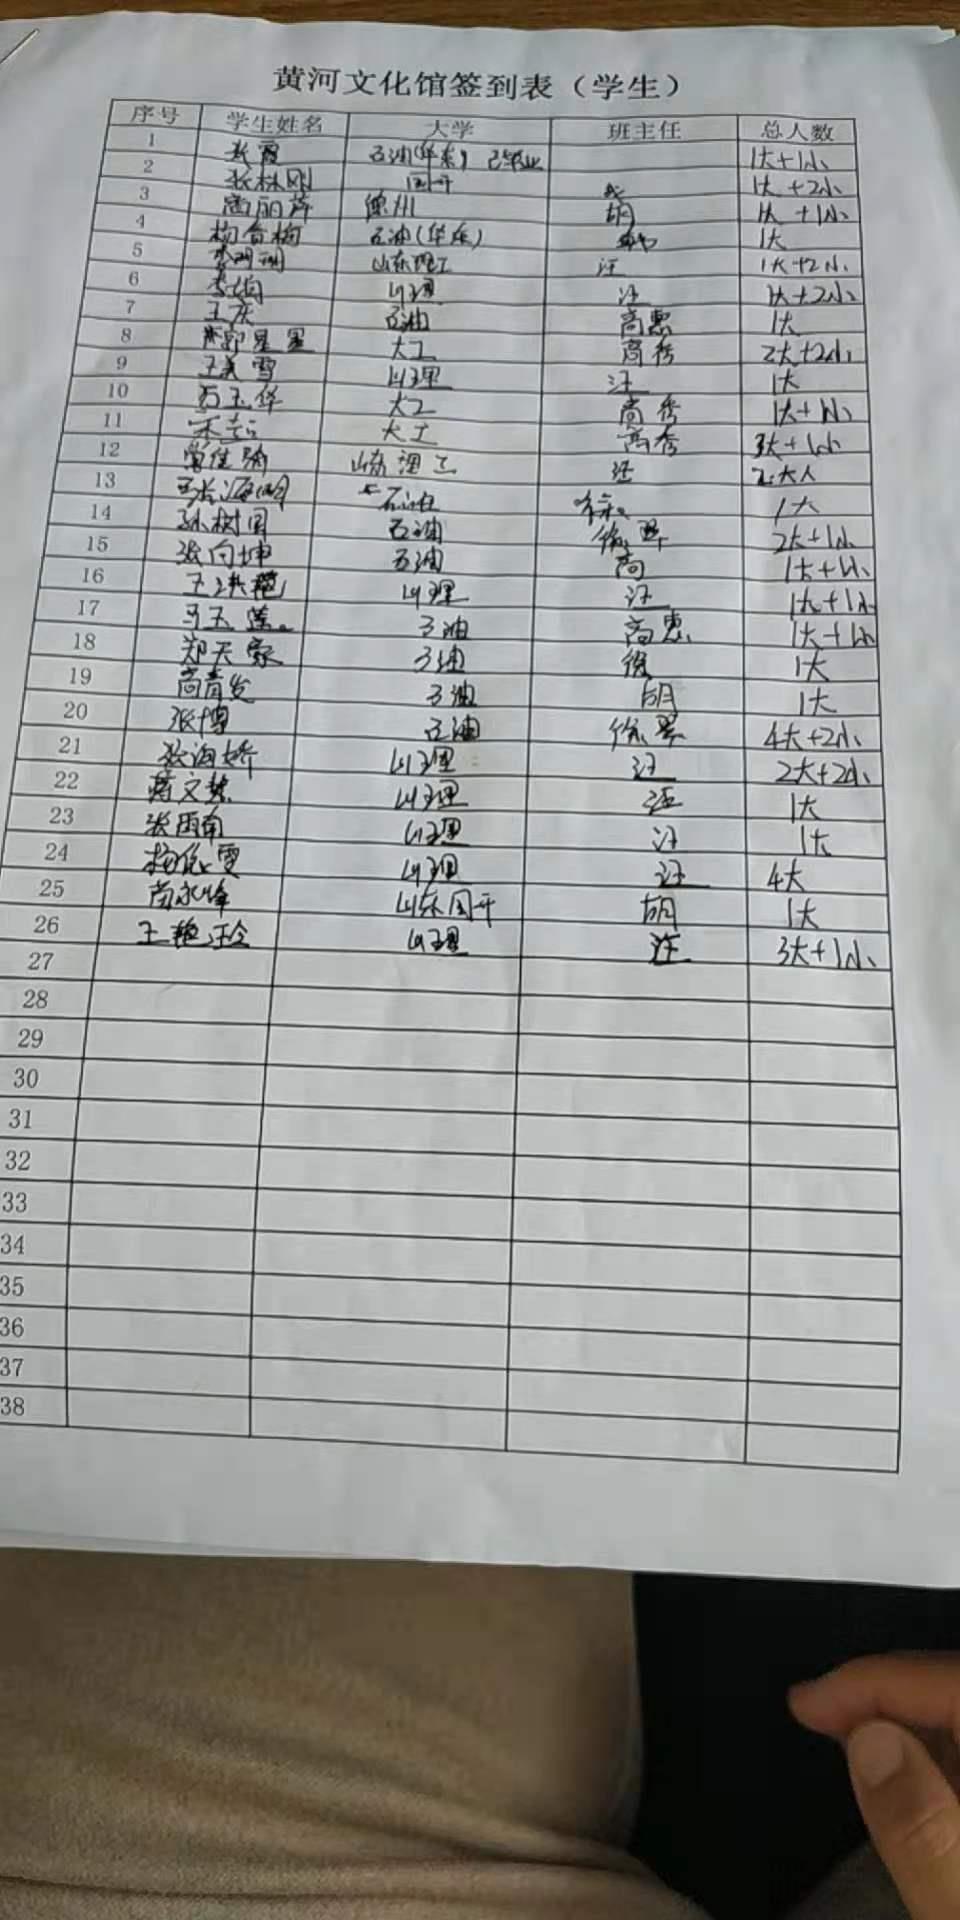 黄河文化馆签到表（学生）
序号 学生姓名 大学 班主任 总人数
1 张霞 石油(华东) 已毕业 1大+1小
2 张林刚 国开 1大+2小
3 高丽萍 德州 胡 1大+1小
4 石油(华东) 1大
5 山东理工 汪 1大+2小
6 山理 汪 1大+2小
7 王庆 石油 高惠 1大
8 星星 大工 高秀 2大+2小
9 王美雪 山理 汪 1大
10 石玉华 大工 高秀 1大+1小
11 大工 高秀 3大+1小
12 曾佳瑜 山东理工 汪 2大人
13 石油 1大
14 孙树国 石油 徐翠 2大+1小
15 张向坤 石油 高 1大+1小
16 王洪艳 山理 汪 1大+1小
17 马玉莲 石油 高惠 1大+1小
18 郑天家 石油 徐 1大
19 高青发 石油 胡 1大
20 张博 石油 徐翠 4大+2小
21 张海娇 山理 汪 2大+2小
22 蒋文慧 山理 汪 1大
23 张雨南 山理 汪 1大
24 杨倪雯 山理 汪 4大
25 尚永峰 山东国开 胡 1大
26 王艳玲 山理 汪 3大+1小
27
28
29
30
31
32
33
34
35
36
37
38